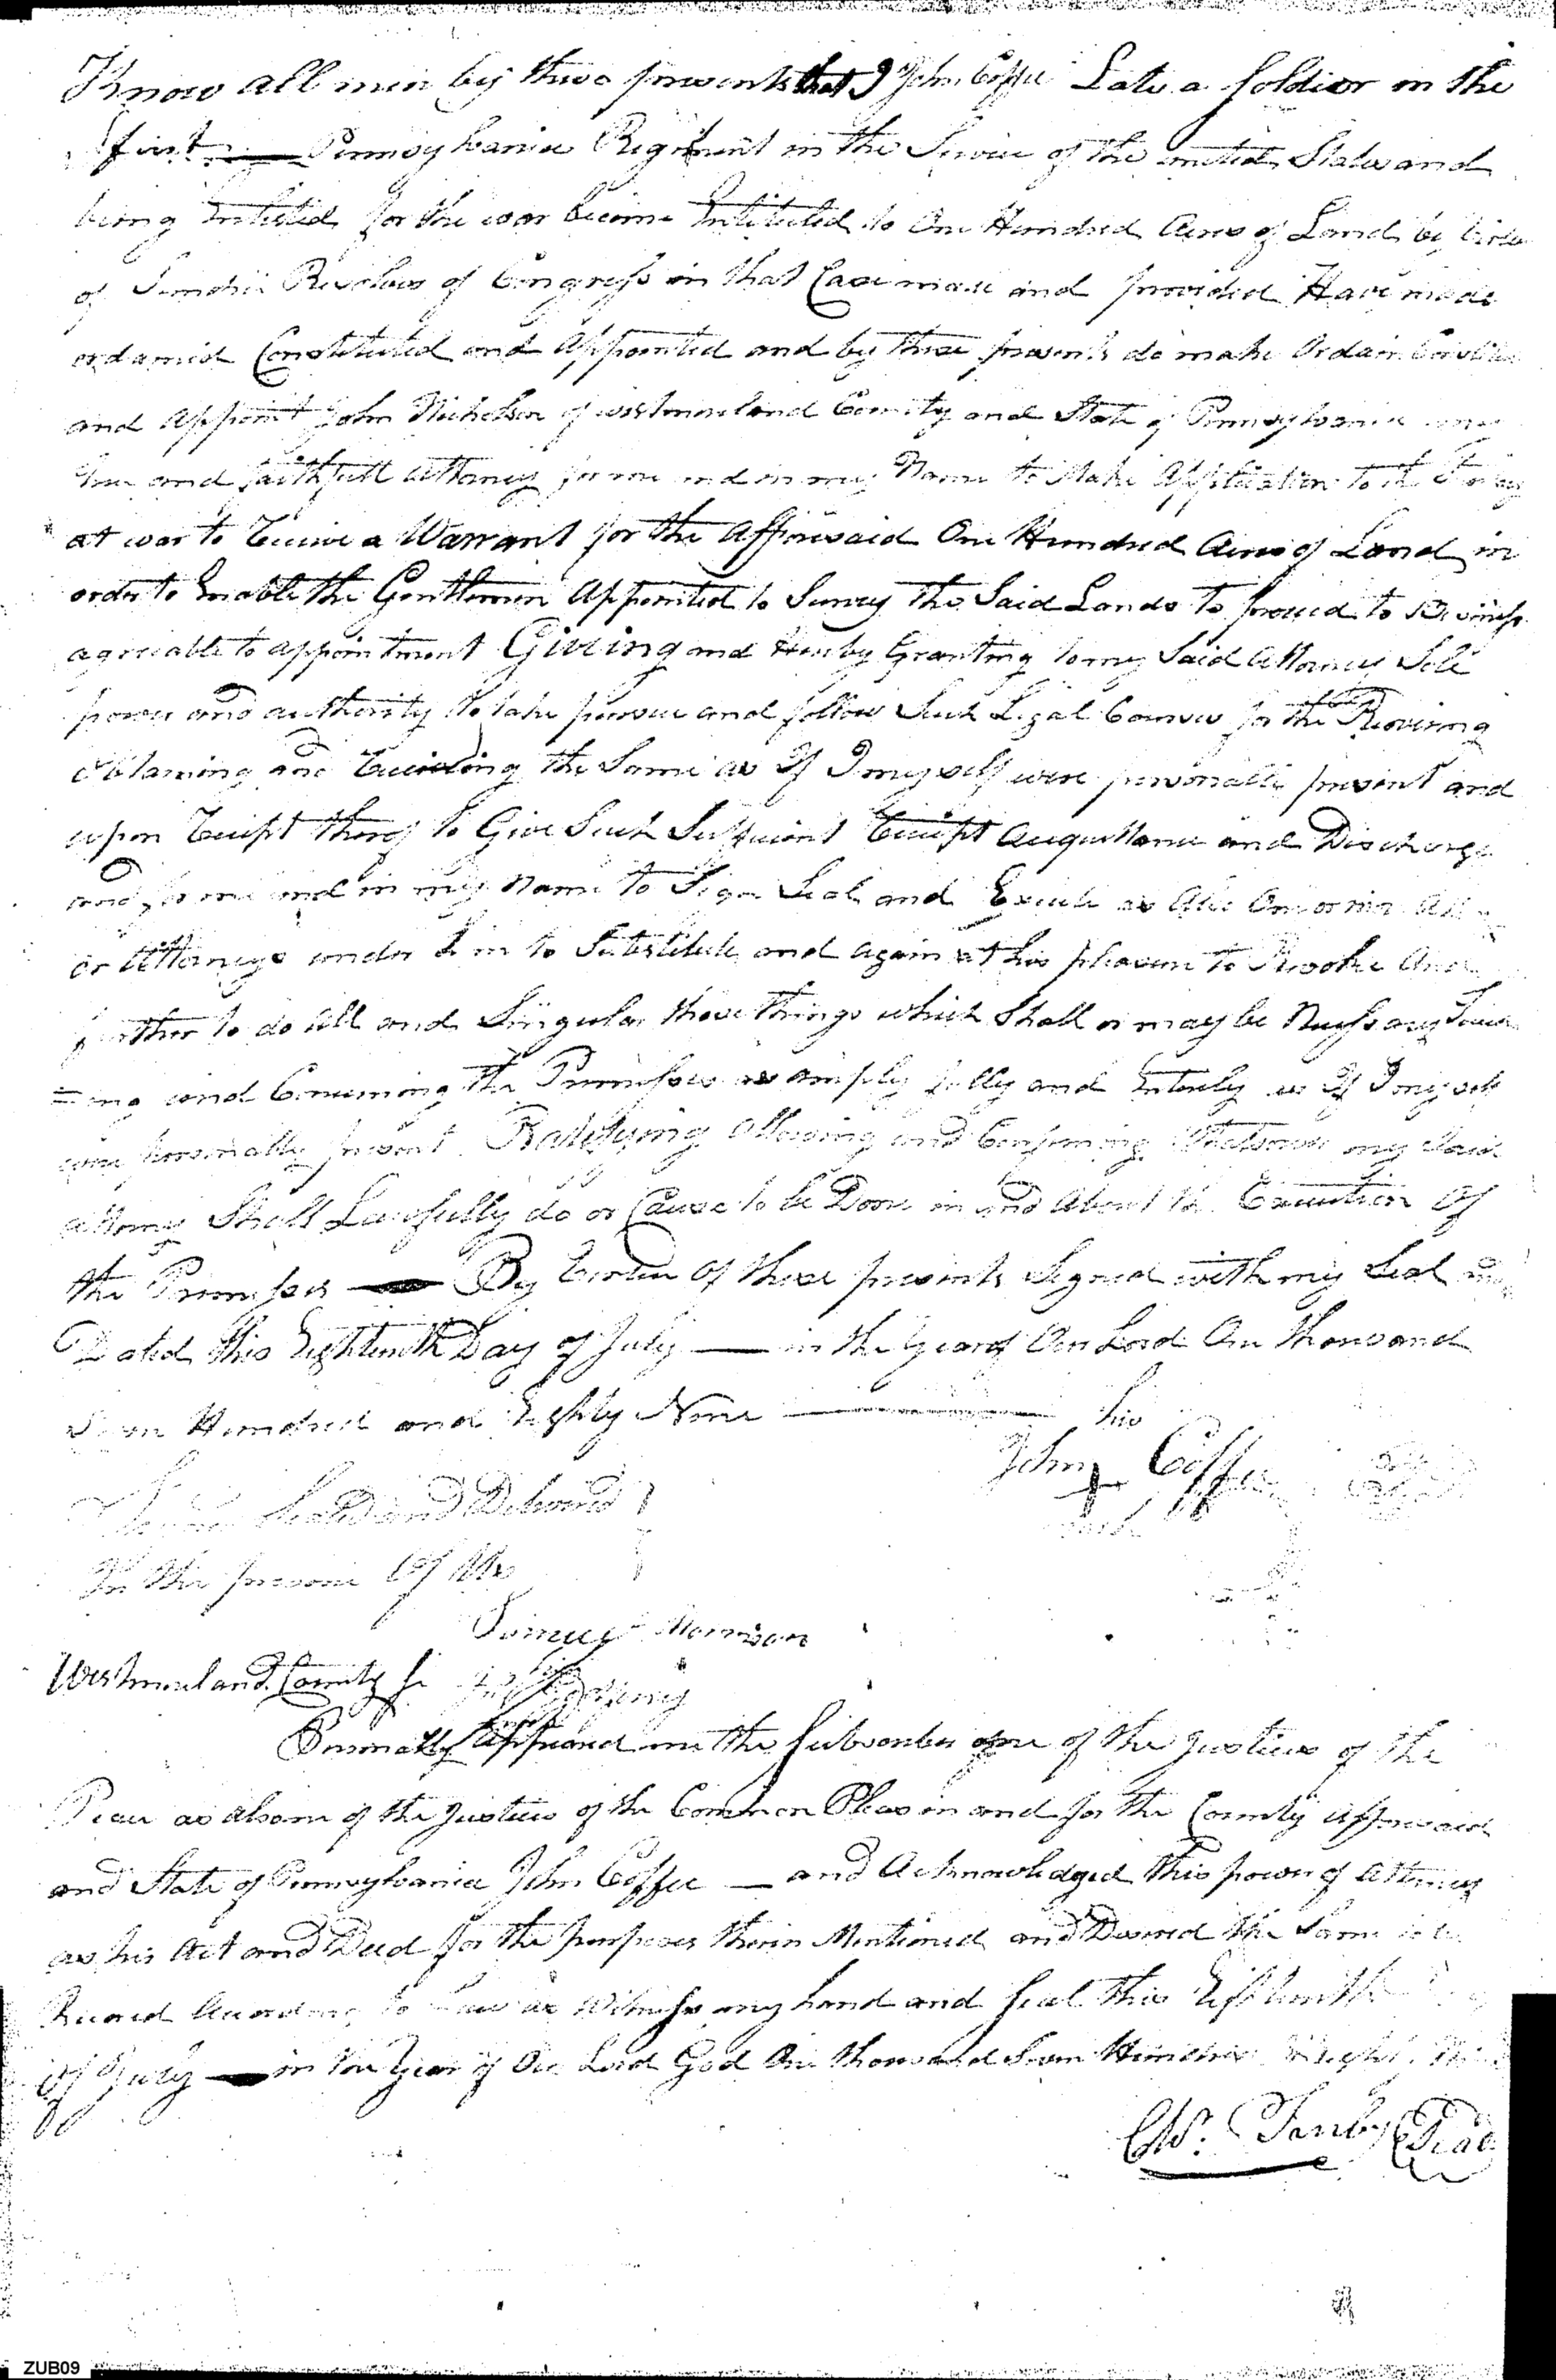 Know all men by these presents that I John Coffee Late a Soldier in the
first Pennsylvania Regiment in the Service of the united States and
being Inlisted for the war became Intituled to One Hundred Acres of Land by Virtue
of Sundrie Resolves of Congress in that Case made and provided Have made
ordained Constituted and Appointed and by these presents do make Ordain Constitute
and Appoint John Nicholson of westmoreland County and State of Pennsylvania my
true and faithfull attorney for me and in my Name to Make Application to the
at war to Receive a Warrant for the afforesaid One Hundred Acres of Land in
order to Enable the Gentlemen Appointed to Survey the Said Lands to proceed to Business
agreeable to appointment Giveing and Hereby Granting to my Said Attorney Sole
power and authority to take pursue and follow Such Legal Courses for the Recovering
obtaining and Receiveing the Same as If I myself were personally present and
upon Receipt thereof to Give Such Sufficient Receipt Acquittance and Discharge
and for me and in my Name to Sign Seal and as also One or more
or Attorneys under him to Substitute and again at his pleasure to Revoke And
further to do all and Singular those things which Shall or may be Nessary Touch
=ing and Concerning the Premises as amply fully and Intirely as If I myself
were personally present Ratifying Allowing and Confirming Whatsoever my Said
attorney Shall Lawfully do or Cause to be Done in and About the Execution Of
the Premises By Virtue Of these presents Signed with my Seal and
Dated this Eighteenth Day of July in the Year of Our Lord One thousand
Seven Hundred and Eighty Nine his
John Coffee
mark
Signed Sealed and Delivered
In the presence Of Us
Morrison
Westmoreland County Ss
Personally Appeared before me the Subscriber one of the Justices of the
Peace as also one of the Justices of the Common Pleas in and for the County afforesaid
and State of Pennsylvania John Coffee and Acknowledged this power of Attorney
as his Act and Deed for the purposes therein Mentioned and Desired the Same to be
Record According to Law as Witness my hand and Seal this
Of July in the Year of Our Lord God One thousand Seven Hundred &